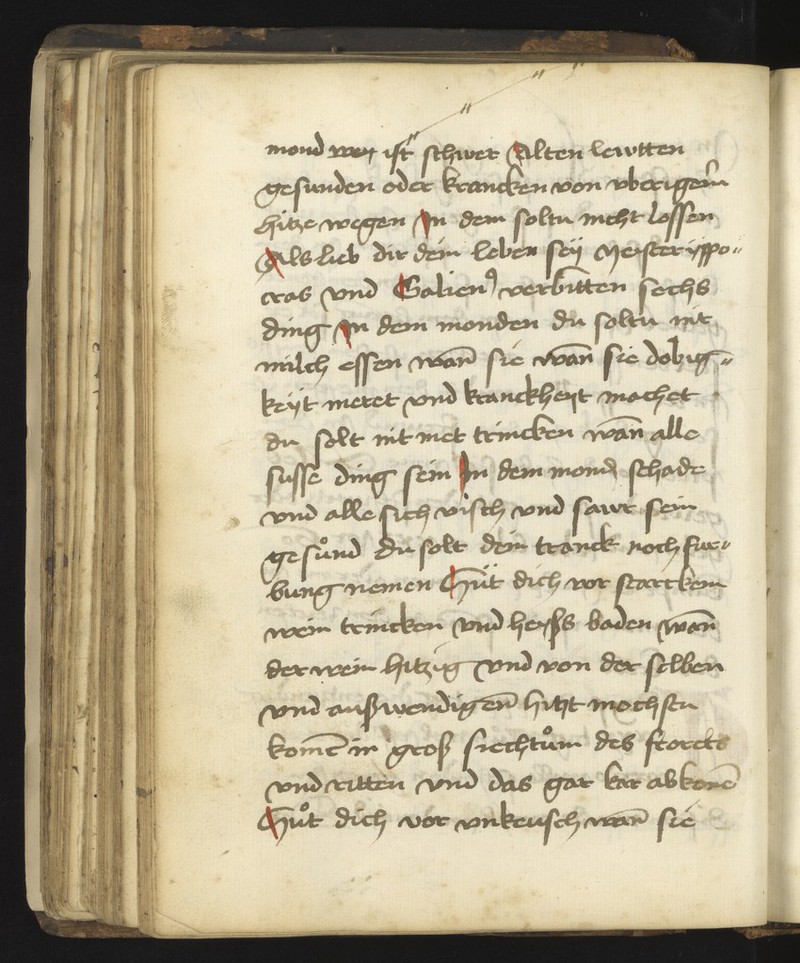 mond wey ist schwer Alten lewtten
gesunden oder krancken von vberigem̄
hitze wegen In dem soltu nicht lossen
Als lieb dir dein leben sey Meister yppo〃
cras vnd Galien⁹ verbitten sechs
ding In dem monden du soltu nit
milch essen wan̄ sie wan̄ sie dobig〃
keyt meret vnd kranckheyt machet
du solt nit met trincken wan̄ alle
susse ding sein In dem mond schade
vnd alle sich visch vnd sawr sein
gesůnd du solt dein tranck noch fur〃
bung nemen Hüt dich vor starckem
wein trincken vnd heyss baden wan̄
der wein hitzig vnd von der selben
vnd außwendigen̄ hitzt mochstu
komē in groß siechtům des storcks
vnd ritten vnd das gar kar abkomē
Hůt dich vor vnkeusch wan̄ sie